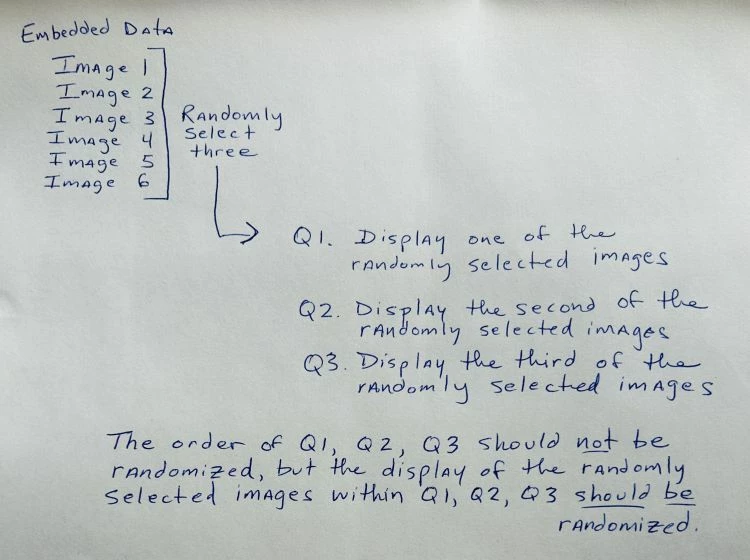 Embedded Data
Image 1
Image 2
Image 3
Image 4
Image 5
Image 6
Randomly
select
three
Q1. Display one of the
randomly selected images
Q2. Display the second of the
randomly selected images
Q3. Display the third of the
randomly selected images
The order of Q1, Q2, Q3 should not be
randomized, but the display of the randomly
selected images within Q1, Q2, Q3 should be
randomized.